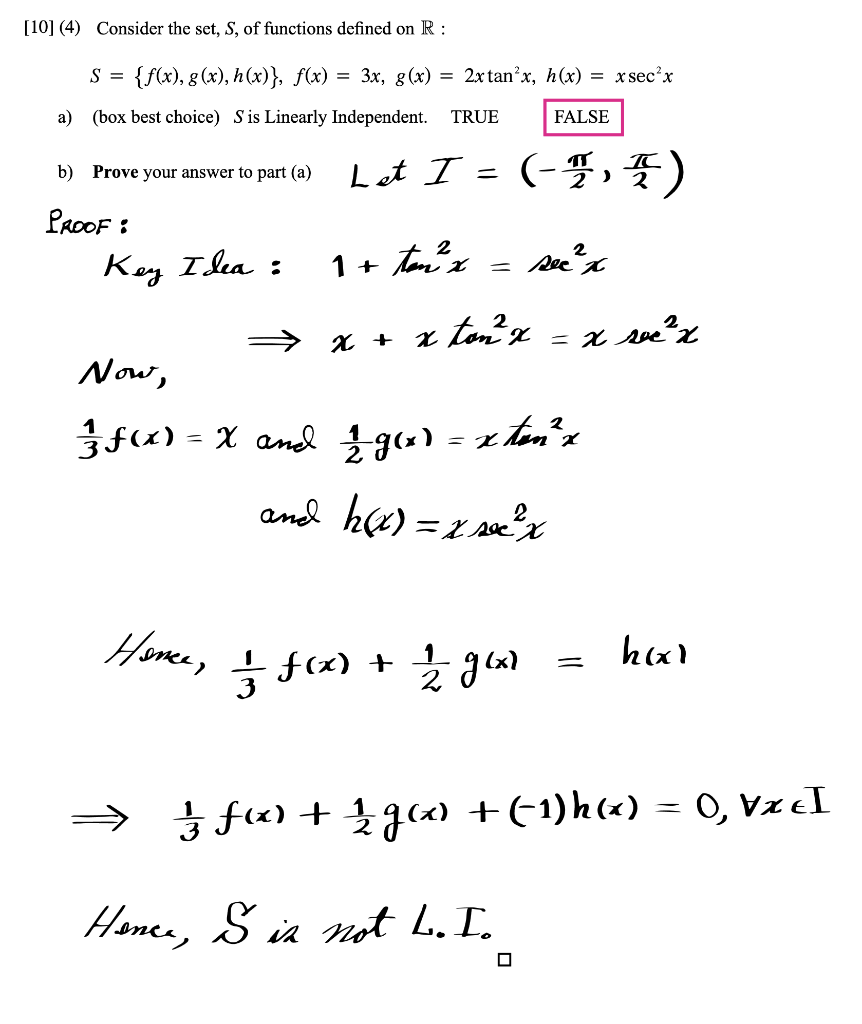 [10] (4) Consider the set, S, of functions defined on ℝ :
S = {f(x), g(x), h(x)}, f(x) = 3x, g(x) = 2x tan²x, h(x) = x sec²x
a) (box best choice) S is Linearly Independent. TRUE FALSE
b) Prove your answer to part (a) Let I = (-π/2, π/2)
PROOF :
Key Idea : 1 + tan²x = sec²x
⟹ x + x tan²x = x sec²x
Now,
1/3 f(x) = x and 1/2 g(x) = x tan²x
and h(x) = x sec²x
Hence, 1/3 f(x) + 1/2 g(x) = h(x)
⟹ 1/3 f(x) + 1/2 g(x) + (-1)h(x) = 0, ∀x∈I
Hence, S is not L.I.
□